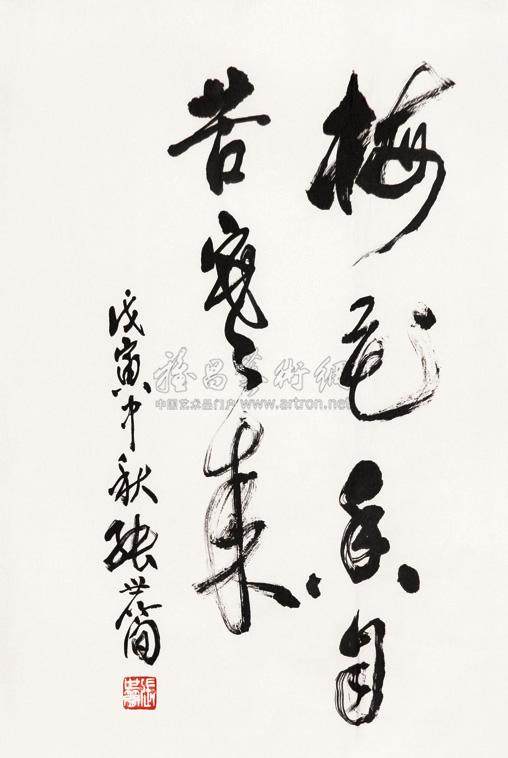 梅花香自
苦寒来
戊寅中秋张世简
雅昌艺术网
中国艺术品门户 www.artron.net